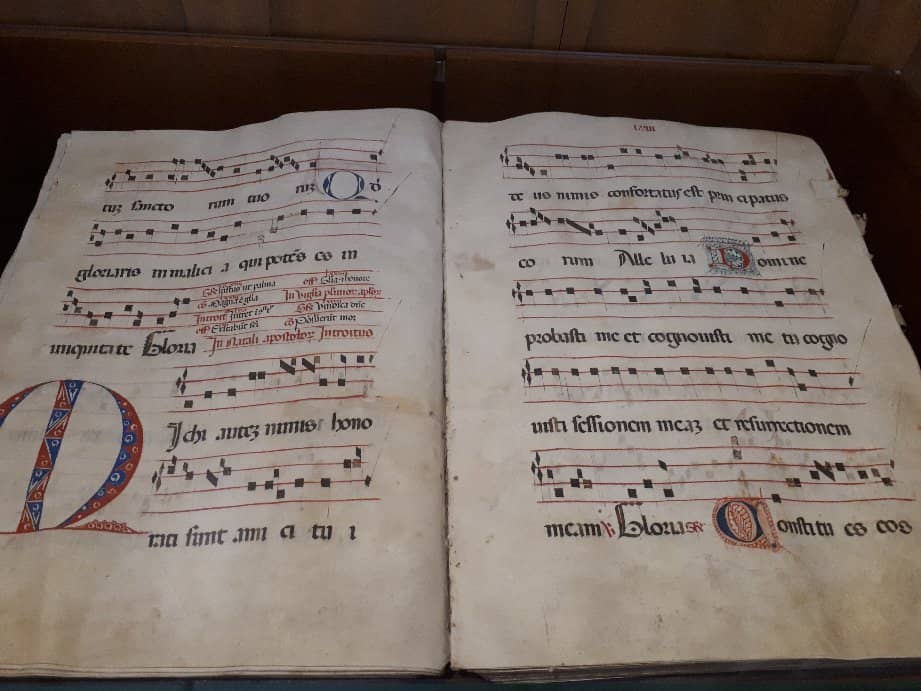 tuꝝ sancto rum tuo ruꝝ Qd
gloriaris in malici a qui potēs es in
iniquitate Gloria
In Natali apostoloꝝ Introitus
Michi auteꝫ nimis hono
rati sunt ami ci tu i
te us nimis confortatus est prin cipatus
eo rum Alle lu ia Domine
probasti me et cognouisti me tu cogno
uisti sessionem meaꝫ et resurrectionem
meam ℣ Gloria Constitu es eos